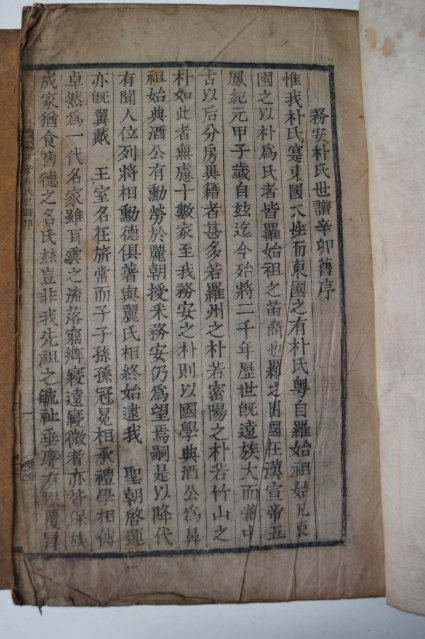 務安朴氏世譜辛卯舊序
惟我朴氏寔東國大姓而東國之有朴氏粤自羅始祖始凡東
國之以朴爲氏者皆羅始祖之苗裔也羅之開國在漢宣帝五
鳳紀元甲子歲自玆迄今殆將二千年歷世旣遠族大而蕃中
古以后分房異籍者甚多若羅州之朴若密陽之朴若竹山之
朴如此者無慮十數家至我務安之朴則以國學典酒公爲鼻
祖始典酒公有勳勞於麗朝授采務安仍爲望焉嗣是以降代
有聞人位列將相勳德俱著與麗氏相終始逮我 聖朝啓運
亦旣翼戴 王室名在旂常而子子孫孫冠冕相承禮學相傳
卓然爲一代名家雖耳雲之流落窮鄕寢遠寢微者亦皆保族
成家猶食舊德之名氏玆豈非我先祖之毓祉垂慶有以覆冒
氏世譜序
一